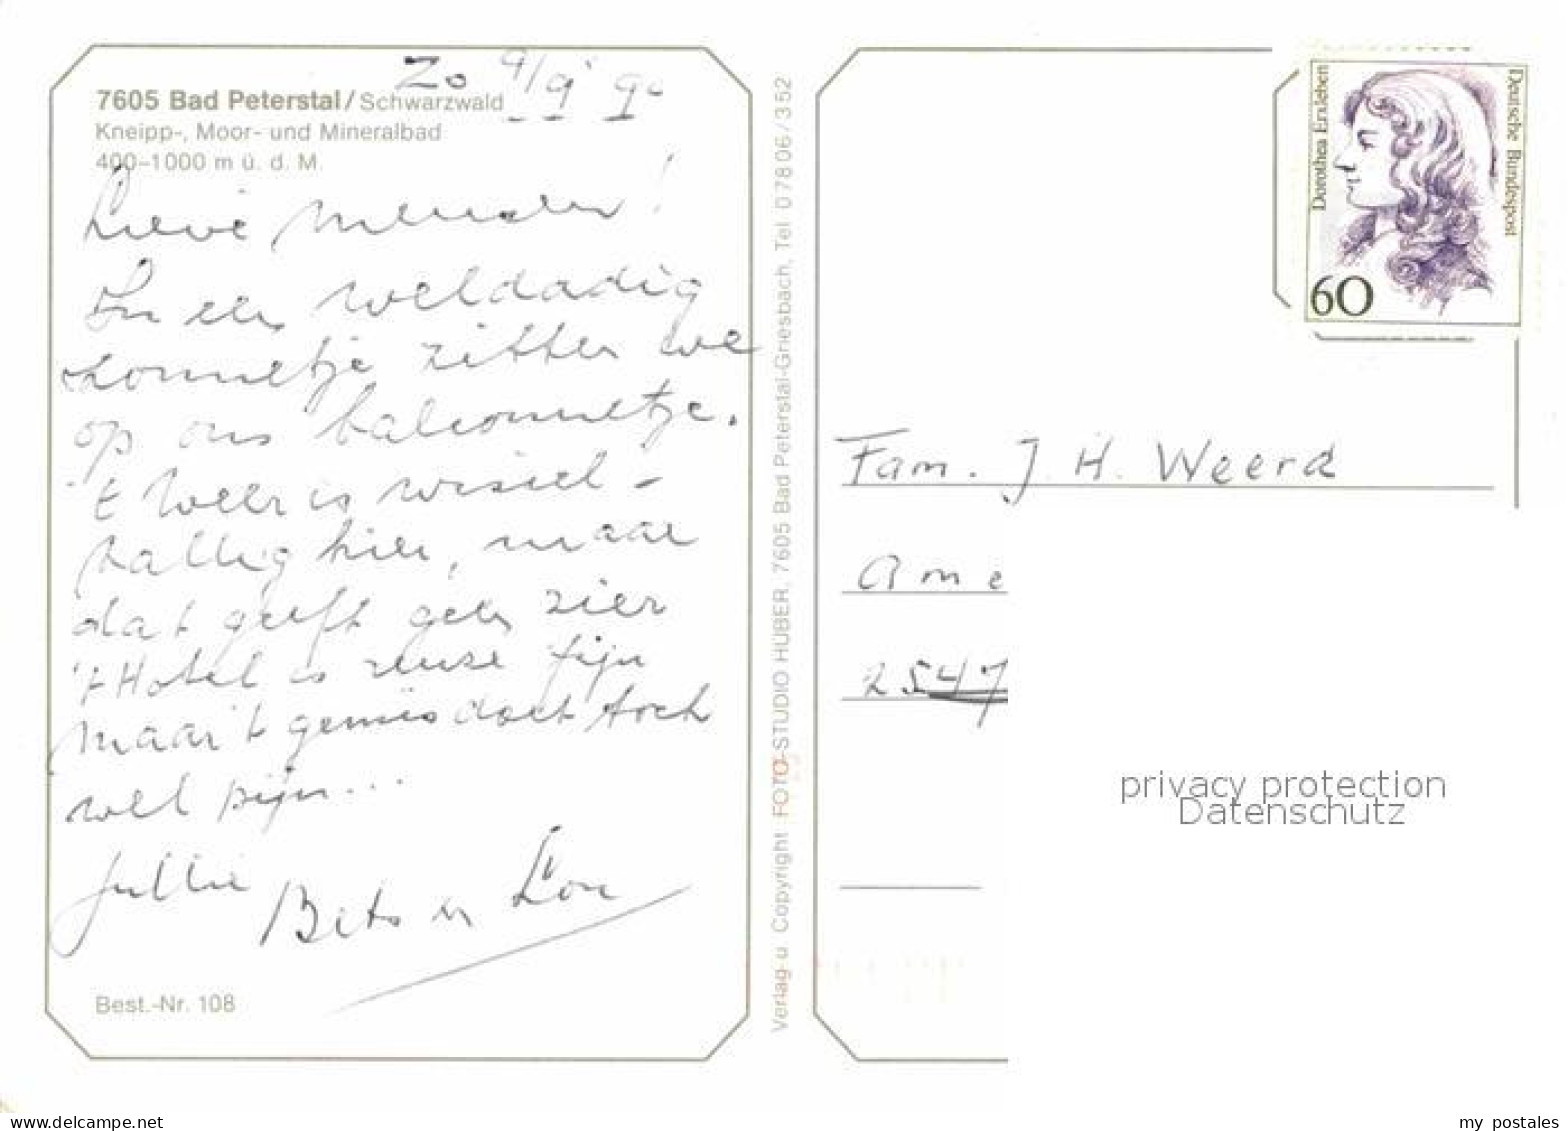 Zo 9/9 '90
7605 Bad Peterstal/Schwarzwald
Kneipp-, Moor- und Mineralbad
400–1000 m ü. d. M.
Lieve mensen!
In een weldadig
zonnetje zitten we
op ons balconnetje.
't Weer is wissel-
vallig hier, maar
dat geeft geen zier
't Hotel is reuze fijn
maar 't gemis doet toch
wel pijn...
Jullie
Bets en Lou
Best.-Nr. 108
Verlag u Copyright: FOTO-STUDIO HUBER, 7605 Bad Peterstal-Griesbach, Tel 07806/352
Dorothea Erxleben
Deutsche Bundespost
60
Fam. J. H. Weerd
Ame
2547
privacy protection
Datenschutz
delcampe.net
my postales